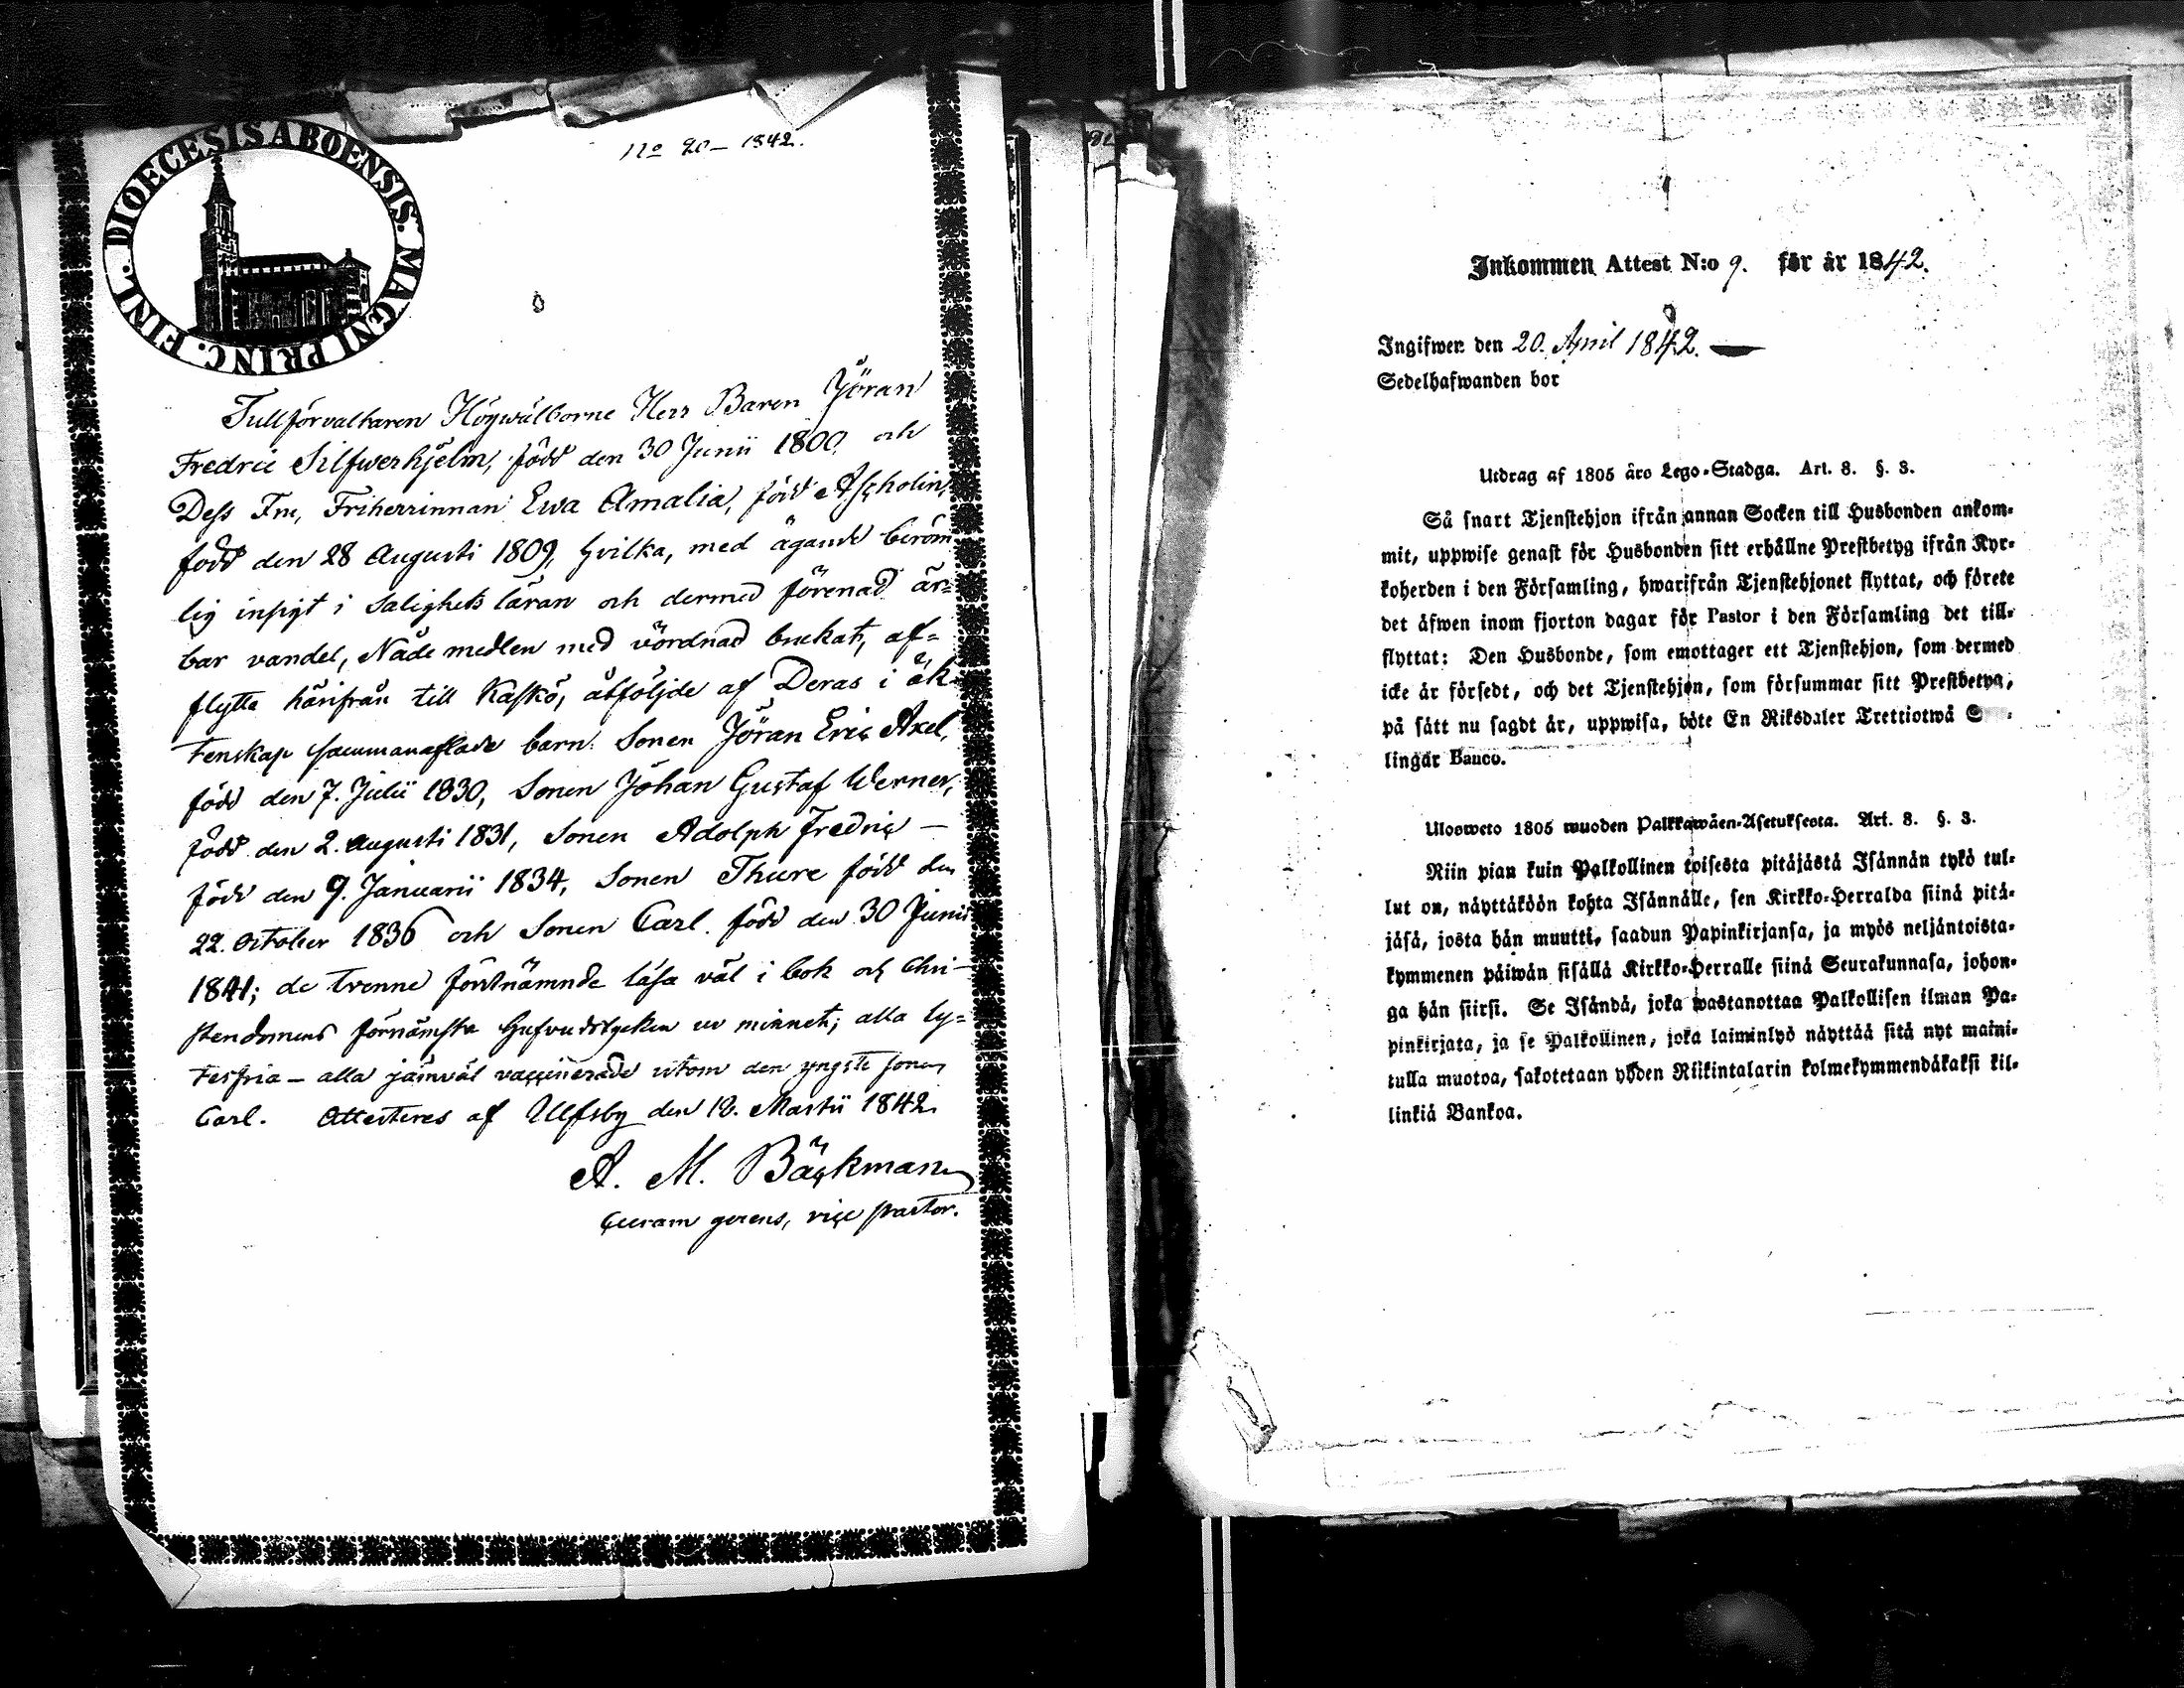 DIOECESIS ABOENSIS. MAGNI PRINC. FINL.
No 20 – 1842.
Tullförvaltaren Högwälborne Herr Baron Jöran
Fredric Silfwerhjelm, född den 30 Junii 1800, och
Dess Fru, Friherrinnan Ewa Amalia, född Ascholin,
född den 28 Augusti 1809, hvilka, med ägande beröm
lig insigt i Salighets läran och dermed förenad är=
bar vandel, Nåde medlen med vördnad brukat, af=
flytta härifrån till Kaskö, åtföljde af Deras i äk
tenskap sammanaflade barn: Sonen Jöran Eric Axel,
född den 7. Julii 1830, Sonen Johan Gustaf Werner,
född den 2. Augusti 1831, Sonen Adolph Fredric –
född den 9. Januarii 1834, Sonen Thure född den
22. October 1836 och Sonen Carl. född den 30 Junii
1841; de trenne förstnämnde läsa väl i bok och Chri-
stendomens förnämsta hufvudstycken ur minnet; alla ly=
tesfria – alla jämväl vaccinerade utom den yngste sonen
Carl. Attesteres af Ulfsby den 18. Martii 1842.
A. M. Bäckman
curam gerens, vice pastor.
Inkommen Attest N:o 9. för år 1842.
Ingifwen den 20. April 1842. —
Sedelhafwanden bor
Utdrag af 1805 års Lego-Stadga. Art. 8. §. 3.
Så snart Tjenstehjon ifrån annan Socken till Husbonden ankom-
mit, uppwise genast för Husbonden sitt erhållne Prestbetyg ifrån Kyr-
koherden i den Församling, hwarifrån Tjenstehjonet flyttat, och förete
det äfwen inom fjorton dagar för Pastor i den Församling det till-
flyttat: Den Husbonde, som emottager ett Tjenstehjon, som dermed
icke är försedt, och det Tjenstehjon, som försummar sitt Prestbetyg,
på sätt nu sagdt är, uppwisa, böte En Riksdaler Trettiotwå
lingar Banco.
Ulosweto 1805 wuoden Palkkawäen-Asetuksesta. Art. 8. §. 3.
Niin pian kuin Palkollinen toisesta pitäjästä Isännän tykö tul-
lut on, näyttäköön kohta Isännälle, sen Kirkko-Herralda siinä pitä-
jäsä, josta hän muutti, saadun Papinkirjansa, ja myös neljäntoista-
kymmenen päiwän sisällä Kirkko-Herralle siinä Seurakunnasa, johon-
ga hän siirsi. Se Isändä, joka wastanottaa Palkollisen ilman Pa-
pinkirjata, ja se Palkollinen, joka laiminlyö näyttää sitä nyt maini-
tulla muotoa, sakotetaan yhden Riikintalarin kolmekymmendäkaksi kil-
linkiä Bankoa.